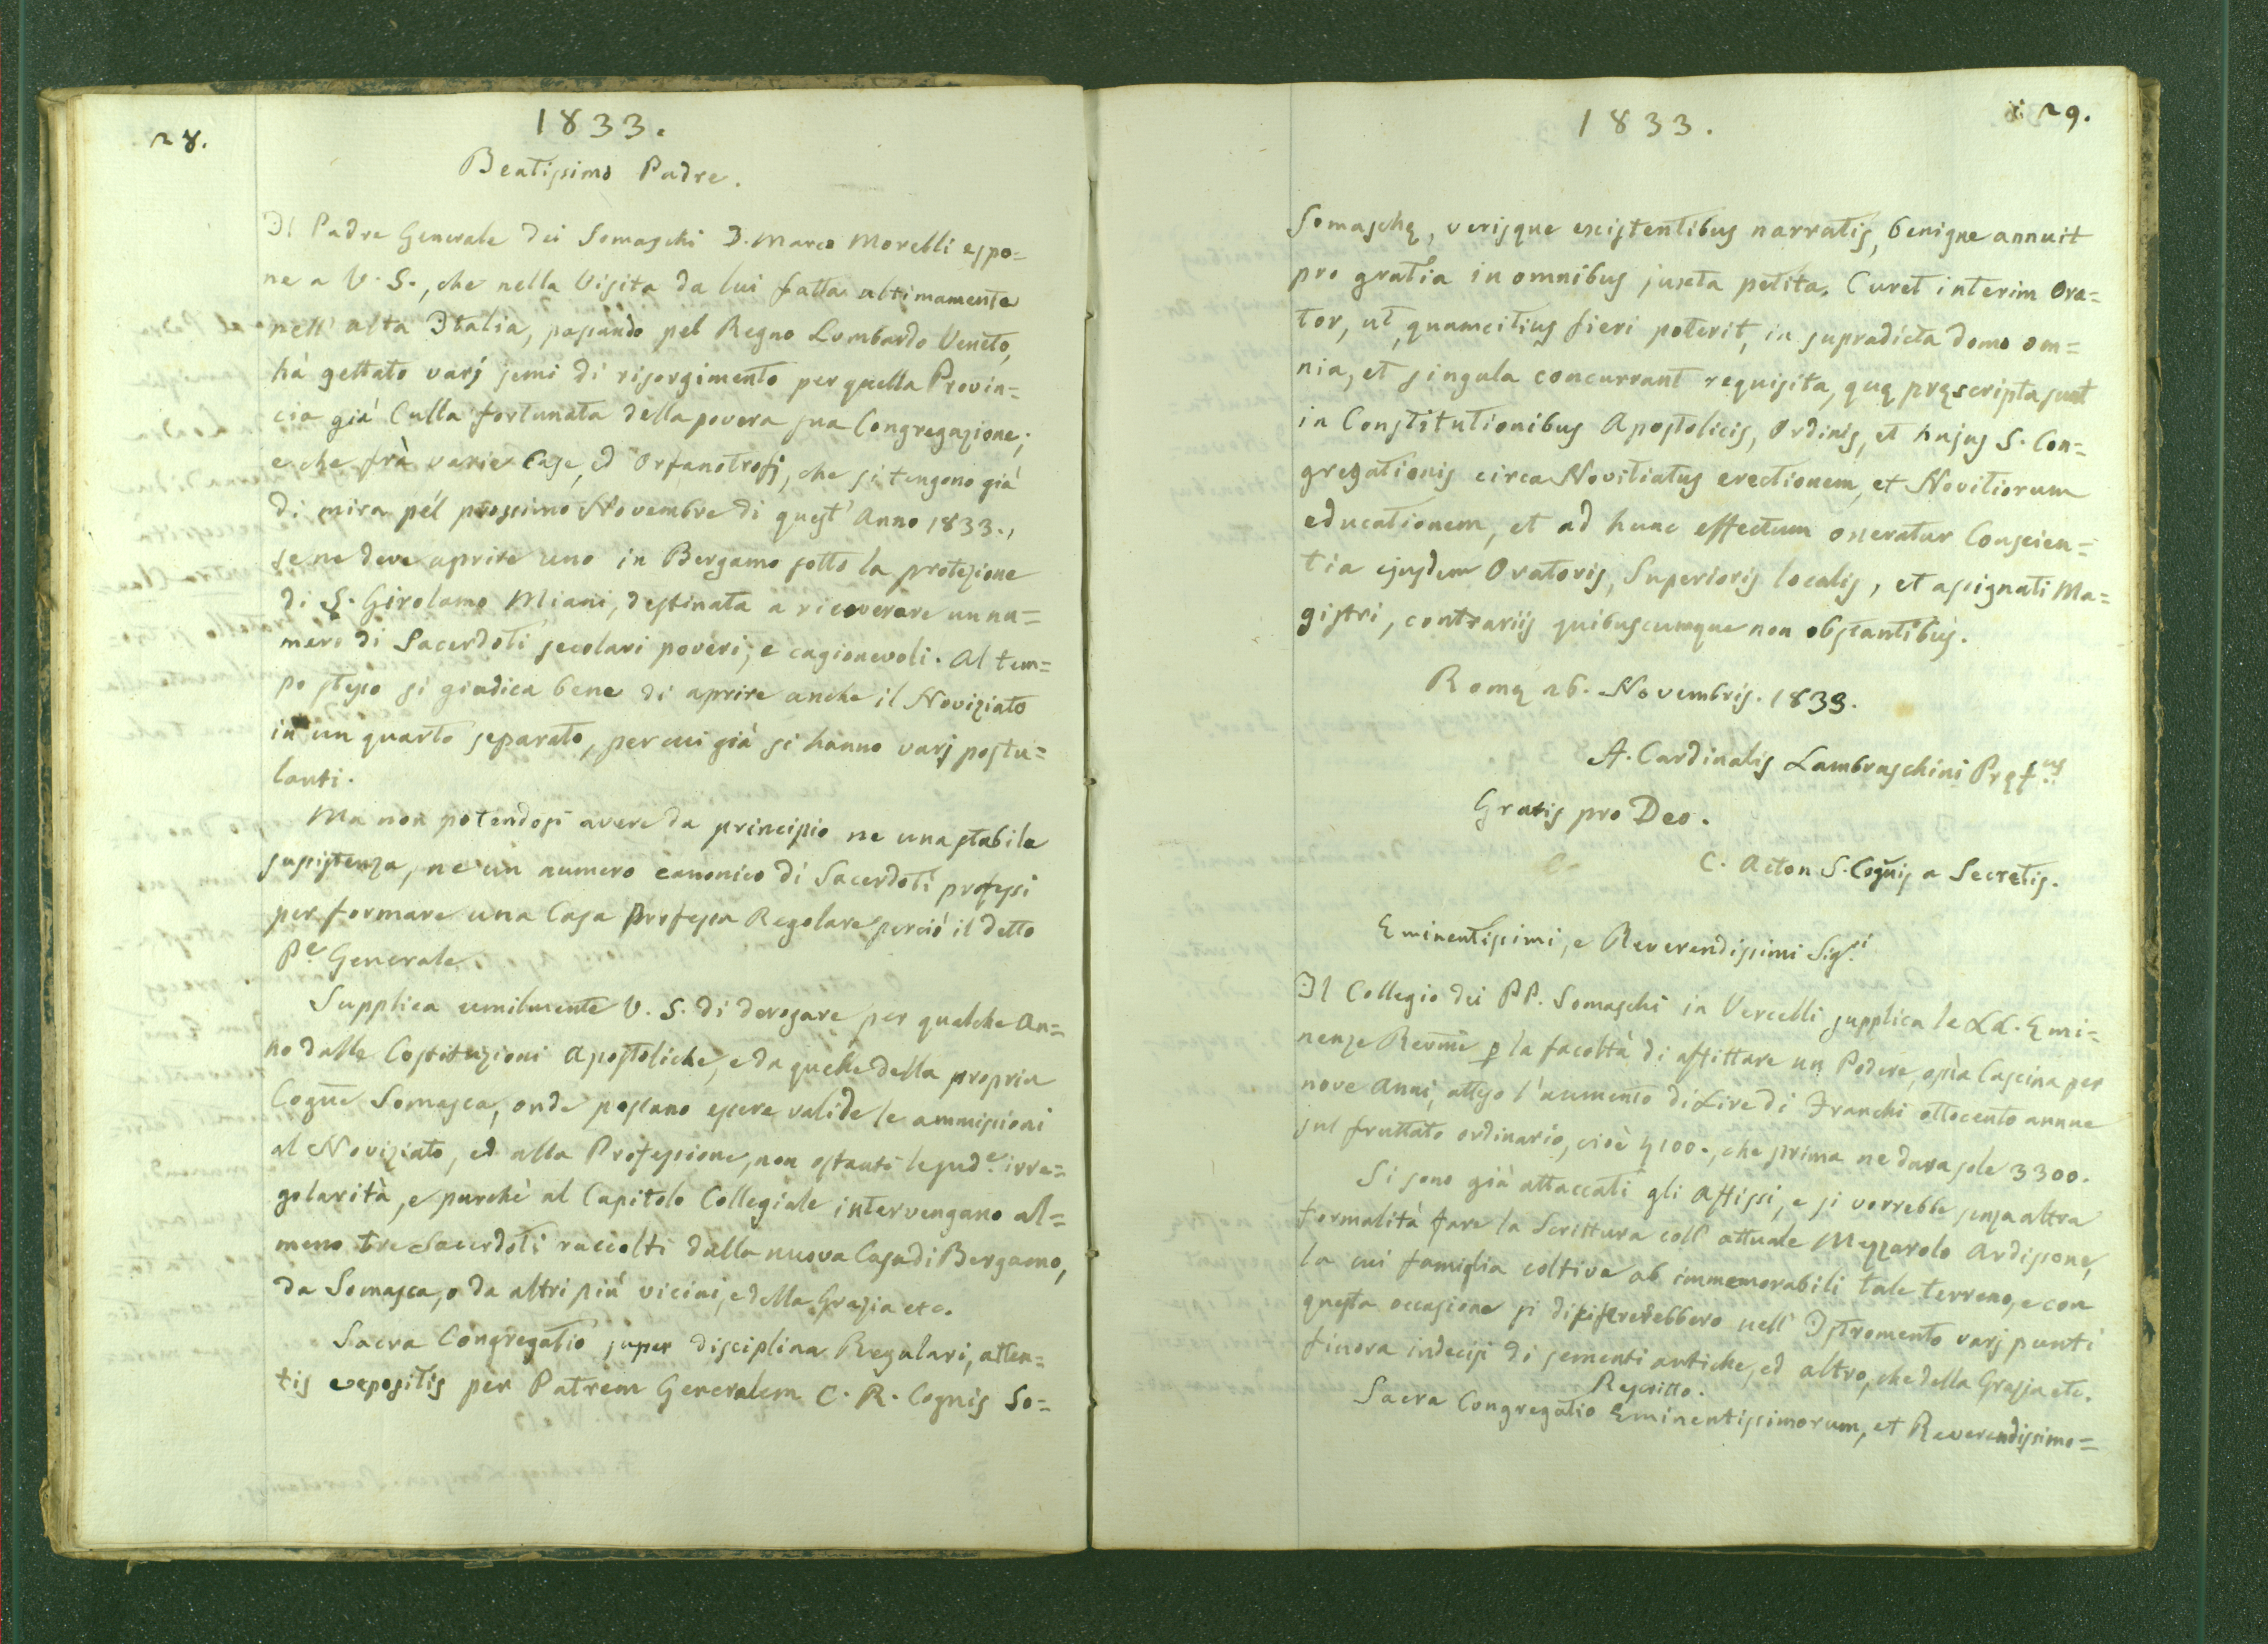 28.
1833.
Beatissimo Padre.
Il Padre Generale dei Somaschi D. Marco Morelli espo=
ne a V. S., che nella Visita da lui fatta ultimamente
nell' alta Italia, passando pel Regno Lombardo Veneto,
hà gettato varj semi di risorgimento per quella Provin=
cia già Culla fortunata della povera sua Congregazione;
e che frà varie Case, ed Orfanotrofj, che si tengono già
di mira pél prossimo Novembre di quest' Anno 1833.,
se ne deve aprire uno in Bergamo sotto la protezione
di S. Girolamo Miani, destinata a ricoverare un nu=
mero di Sacerdoti secolari poveri, e cagionevoli. Al tem=
po stesso si giudica bene di aprire anche il Noviziato
in un quarto separato, per cui già si hanno varj postu=
lanti.
Ma non potendosi avere da principio ne una stabile
sussistenza, ne un numero canonico di Sacerdoti professi
per formare una Casa Professa Regolare perciò il detto
Pe Generale
Supplica umilmente V. S. di derogare per qualche An=
no dalle Costituzioni Apostoliche, e da quelle della propria
Cogne Somasca, onde possano essere valide le ammissioni
al Noviziato, ed alla Professione, non ostanti le sude. irre=
golarità, e purchè al Capitolo Collegiale intervengano al=
meno tre Sacerdoti raccolti dalla nuova Casa di Bergamo,
da Somasca, o da altri più vicini, e della Grazia etc.
Sacra Congregatio super disciplina Regulari, atten=
tis expositis per Patrem Generalem C. R. Cognis So=
29.
1833.
Somaschę, verisque existentibus narratis, benigne annuit
pro gratia in omnibus juxta petita. Curet interim Ora=
tor, ut, quamcitius fieri poterit, in supradicta domo om=
nia, et singula concurrant requisita, quę pręscripta sunt
in Constitutionibus Apostolicis, Ordinis, et hujus S. Con=
gregationis circa Novitiatus erectionem, et Novitiorum
educationem, et ad hunc effectum oneratur Conscien=
tia ejusdem Oratoris, Superioris localis, et assignati Ma=
gistri, contrariis quibuscumque non obstantibus.
Romę 26. Novembris. 1833.
A. Cardinalis Lambruschini Pręfus
Gratis pro Deo.
C. Acton S. Cognis a Secretis.
Eminentissimi, e Reverendissimi Sigri
Il Collegio dei PP. Somaschi in Vercelli supplica le LL. Emi=
nenze Revme p la facoltà di affittare un Podere, ossia Cascina per
nove Anni, atteso l'aumento di Lire di Franchi ottocento annue
sul fruttato ordinario, cioè 4100., che prima ne dava sole 3300.
Si sono già attaccati gli Affissi, e si vorrebbe senza altra
formalità fare la Scrittura coll' attuale Mezzarolo Ardissone,
la cui famiglia coltiva ab immemorabili tale terreno, e con
questa occasione si nell' Istromento varj punti
finora indecisi di sementi antiche, ed altro, che della Grazia etc.
Rescritto.
Sacra Congregatio Eminentissimorum, et Reverendissimo=